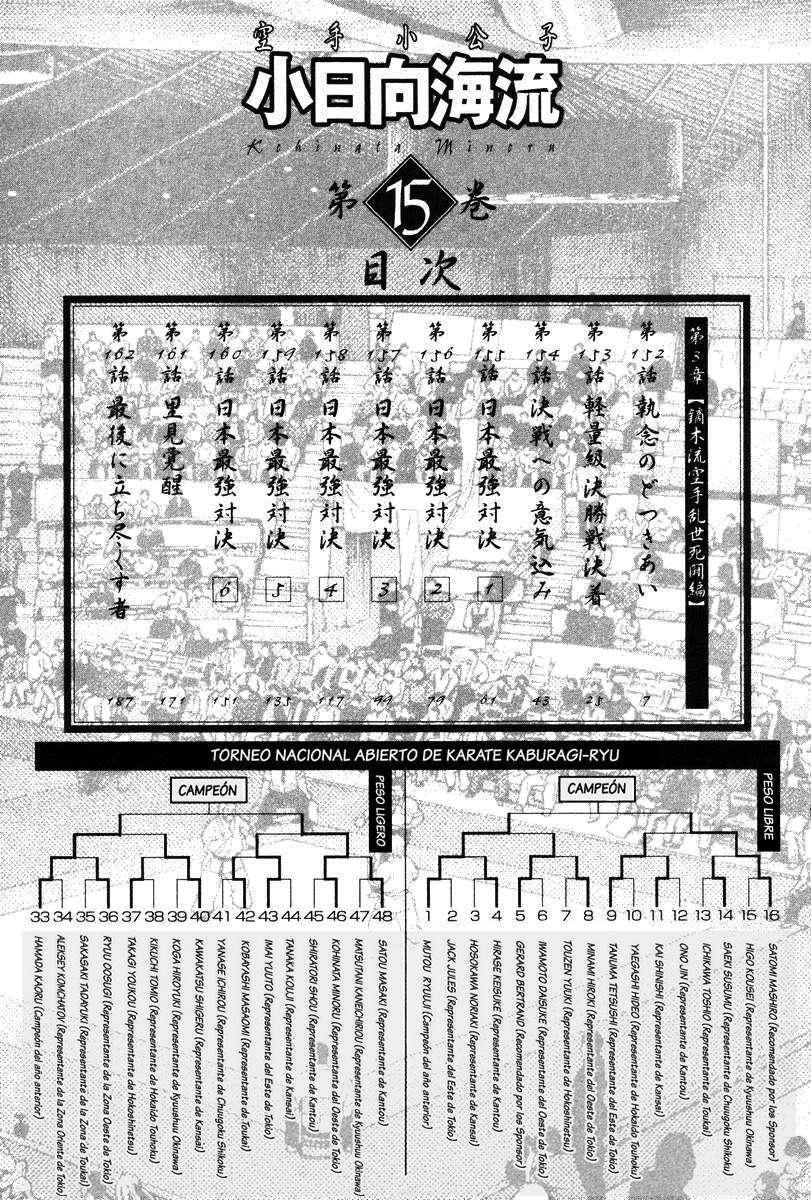 空手小公子
小日向海流
Kohinata Minoru
第15巻
目次
第3章【鏑木流空手乱世死闘編】
第152話 執念のどつきあい 7
第153話 軽量級決勝戦決着 25
第154話 決戦への意気込み 43
第155話 日本最強対決 1 61
第156話 日本最強対決 2 79
第157話 日本最強対決 3 99
第158話 日本最強対決 4 117
第159話 日本最強対決 5 135
第160話 日本最強対決 6 151
第161話 里見覚醒 171
第162話 最後に立ち尽くす者 187
TORNEO NACIONAL ABIERTO DE KARATE KABURAGI-RYU
CAMPEÓN
PESO LIGERO
33 34 35 36 37 38 39 40 41 42 43 44 45 46 47 48
HAMADA KAORU (Campeón del año anterior)
ALEKSEY KOMCHATOV (Representante de la Zona Oriente de Tokio)
SAKASAKI TADAYUKI (Representante de la Zona de Toukai)
RYUU OOSUGI (Representante de la Zona Oeste de Tokio)
TAKAGI YOUKOU (Representante de Hokoshinetsu)
KIKUCHI TOMIO (Representante de Hokaido Touhoku)
KOGA HIROYUKI (Representante de Kyuushuu Okinawa)
KAWAKATSU SHIGERU (Representante de Kansai)
YANASE ICHIROU (Representante de Chuugoku Shikoku)
KOBAYASHI MASAOMI (Representante de Toukai)
IMAI YUUTO (Representante del Este de Tokio)
TANAKA KOUJI (Representante de Kansai)
SHIRATORI SHOU (Representante de Kantou)
KOHINATA MINORU (Representante del Oeste de Tokio)
MATSUTANI KANEICHIROU (Representante de Kyuushuu Okinawa)
SATOU MASAKI (Representante de Kantou)
CAMPEÓN
PESO LIBRE
1 2 3 4 5 6 7 8 9 10 11 12 13 14 15 16
MUTOU RYUUJI (Campeón del año anterior)
JACK JULES (Representante del Este de Tokio)
HOSOKAWA NORIAKI (Representante de Kansai)
HIRASE KEISUKE (Representante de Kantou)
GERARD BERTRAND (Recomendado por los Sponsor)
IWAMOTO DAISUKE (Representante del Oeste de Tokio)
TOUZEN YUUKI (Representante de Hokoshinetsu)
MINAMI HIROKI (Representante del Oeste de Tokio)
TANUMA TETSUSHI (Representante del Este de Tokio)
YAEGASHI HIDEO (Representante de Hokaido Touhoku)
KAI SHINISHI (Representante de Kansai)
ONO JIN (Representante de Kantou)
ICHIKAWA TOSHIO (Representante de Toukai)
SAEKI SUSUMU (Representante de Chuugoku Shikoku)
HIGO KOUSEI (Representante de Kyuushuu Okinawa)
SATOMI MASHIRO (Recomendado por los Sponsor)